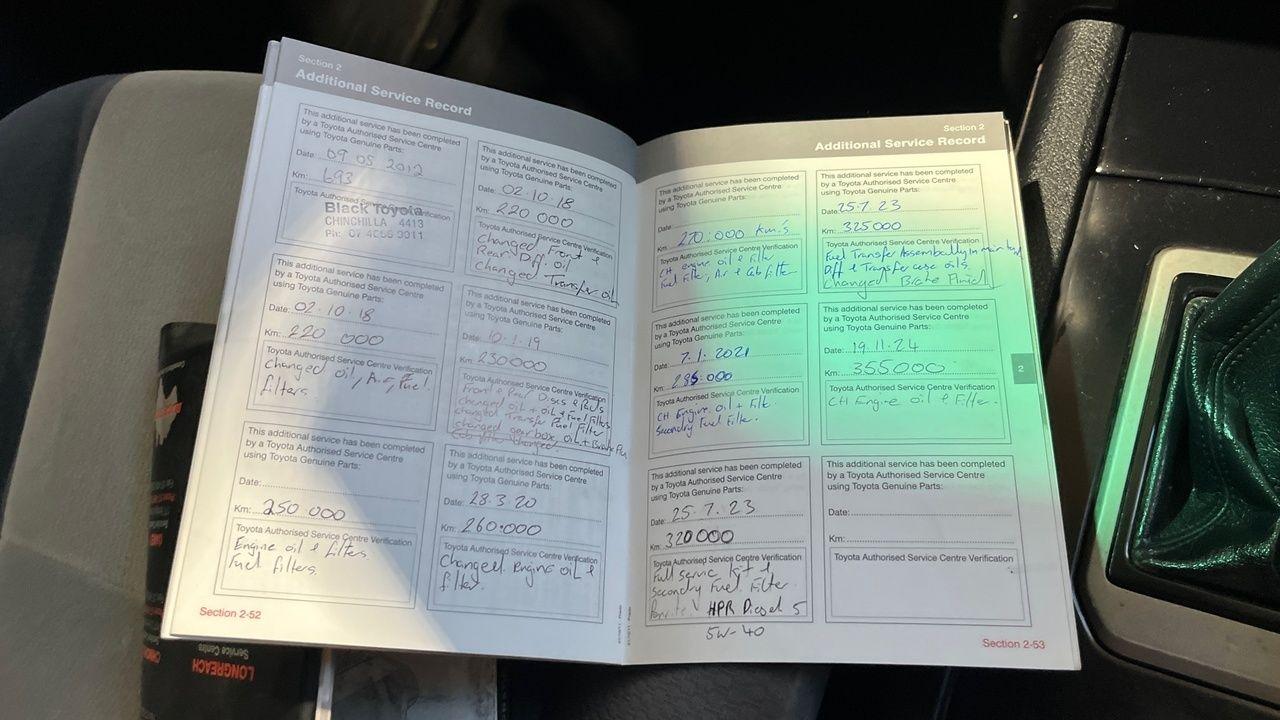 Section 2
Additional Service Record
This additional service has been completed
by a Toyota Authorised Service Centre
using Toyota Genuine Parts:
Date: 09 05 2012
Km: 693
Toyota Authorised Service Centre Verification
Black Toyota
CHINCHILLA 4413
This additional service has been completed
by a Toyota Authorised Service Centre
using Toyota Genuine Parts:
Date: 02.10.18
Km: 220 000
Toyota Authorised Service Centre Verification
changed oil, Air, Fuel
filters
This additional service has been completed
by a Toyota Authorised Service Centre
using Toyota Genuine Parts:
Date:
Km: 250 000
Toyota Authorised Service Centre Verification
Engine oil & filters.
Fuel filters.
This additional service has been completed
by a Toyota Authorised Service Centre
using Toyota Genuine Parts:
Date: 02.10.18
Km: 220 000
Toyota Authorised Service Centre Verification
changed Front &
Rear Diff oil
changed Transfer oil
This additional service has been completed
by a Toyota Authorised Service Centre
using Toyota Genuine Parts:
Date: 10.1.19
Km: 230000
Toyota Authorised Service Centre Verification
Front & Rear Discs & Pads
changed oil + oil & Fuel Filters
changed Transfer Fuel Filter
changed gear box oil + Brake Flu
Cab filter changed.
This additional service has been completed
by a Toyota Authorised Service Centre
using Toyota Genuine Parts:
Date: 28.3.20
Km: 260.000
Toyota Authorised Service Centre Verification
Changed Engine oil &
filter.
Section 2-52
Section 2
Additional Service Record
This additional service has been completed
by a Toyota Authorised Service Centre
using Toyota Genuine Parts:
Date:
Km: 270:000 km's
Toyota Authorised Service Centre Verification
CH engine oil & Filter
Fuel Filter, Air & Cab filter
This additional service has been completed
by a Toyota Authorised Service Centre
using Toyota Genuine Parts:
Date: 7.1.2021
Km: 285.000
Toyota Authorised Service Centre Verification
CH Engine oil + Filt.
Secondry Fuel Filter.
This additional service has been completed
by a Toyota Authorised Service Centre
using Toyota Genuine Parts:
Date: 25.7.23
Km: 320000
Toyota Authorised Service Centre Verification
Full servic kit &
Secondry Fuel Filter
HPR Diesel 5
5W-40
This additional service has been completed
by a Toyota Authorised Service Centre
using Toyota Genuine Parts:
Date: 25.7.23
Km: 325000
Toyota Authorised Service Centre Verification
Fuel Transfer In main tank
Diff & Transfer case oils.
Changed Brake Fluid
This additional service has been completed
by a Toyota Authorised Service Centre
using Toyota Genuine Parts:
Date: 19.11.24
Km: 355000
Toyota Authorised Service Centre Verification
CH Engine oil & Filter.
This additional service has been completed
by a Toyota Authorised Service Centre
using Toyota Genuine Parts:
Date:
Km:
Toyota Authorised Service Centre Verification
2
Section 2-53
LONGREACH
Service Centre